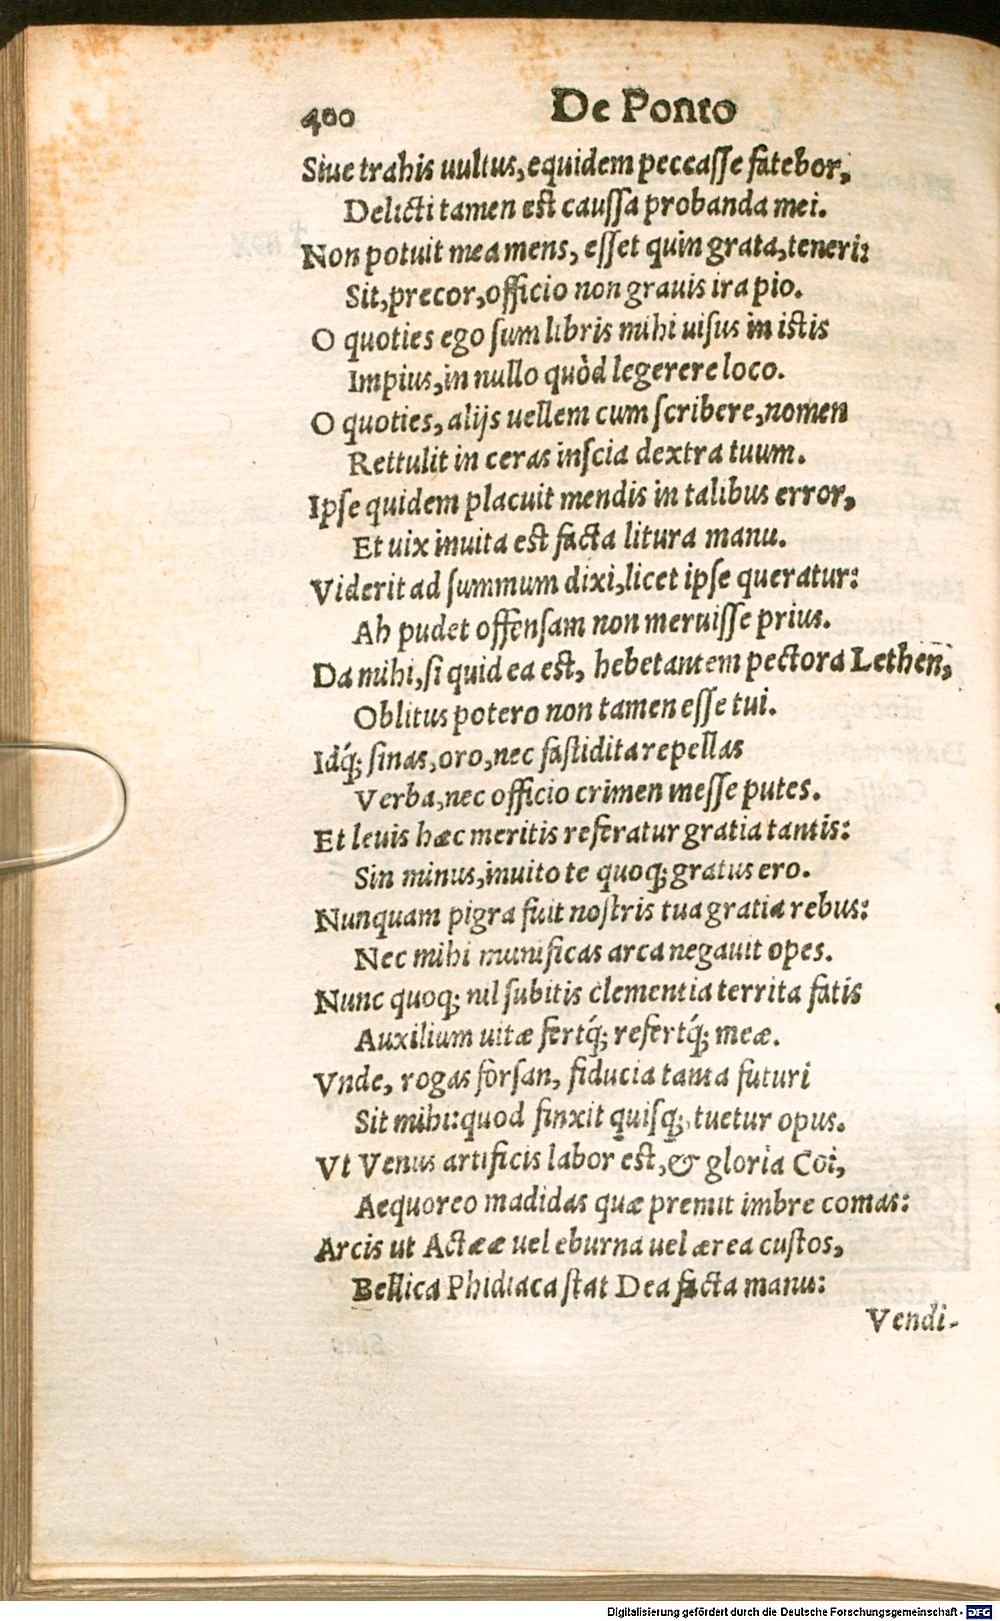 400 De Ponto
Siue trahis uultus, equidem peccasse fatebor,
Delicti tamen est caussa probanda mei.
Non potuit mea mens, esset quin grata, teneri:
Sit, precor, officio non grauis ira pio.
O quoties ego sum libris mihi uisus in istis
Impius, in nullo quòd legerere loco.
O quoties, alijs uellem cum scribere, nomen
Rettulit in ceras inscia dextra tuum.
Ipse quidem placuit mendis in talibus error,
Et uix inuita est facta litura manu.
Viderit ad summum dixi, licet ipse queratur:
Ah pudet offensam non meruisse prius.
Da mihi, si quid ea est, hebetantem pectora Lethen,
Oblitus potero non tamen esse tui.
Idq́; sinas, oro, nec fastidita repellas
Verba, nec officio crimen inesse putes.
Et leuis hæc meritis referatur gratia tantis:
Sin minus, inuito te quoq; gratus ero.
Nunquam pigra fuit nostris tua gratia rebus:
Nec mihi munificas arca negauit opes.
Nunc quoq; nil subitis clementia territa fatis
Auxilium uitæ fertq́; refertq́; meæ.
Vnde, rogas forsan, fiducia tanta futuri
Sit mihi: quod finxit quisq; tuetur opus.
Vt Venus artificis labor est, & gloria Coi,
Aequoreo madidas quæ premit imbre comas:
Arcis ut Actææ uel eburna uel ærea custos,
Bellica Phidiaca stat Dea facta manu:
Vendi-
Digitalisierung gefördert durch die Deutsche Forschungsgemeinschaft - DFG